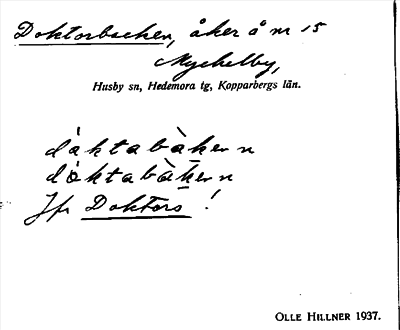 Doktorbacken, åker å nr 15
Myckelby,
Husby sn, Hedemora tg, Kopparbergs län.
dàktabàkern
dòktabàkern
Jfr Doktors !
OLLE HILLNER 1937.